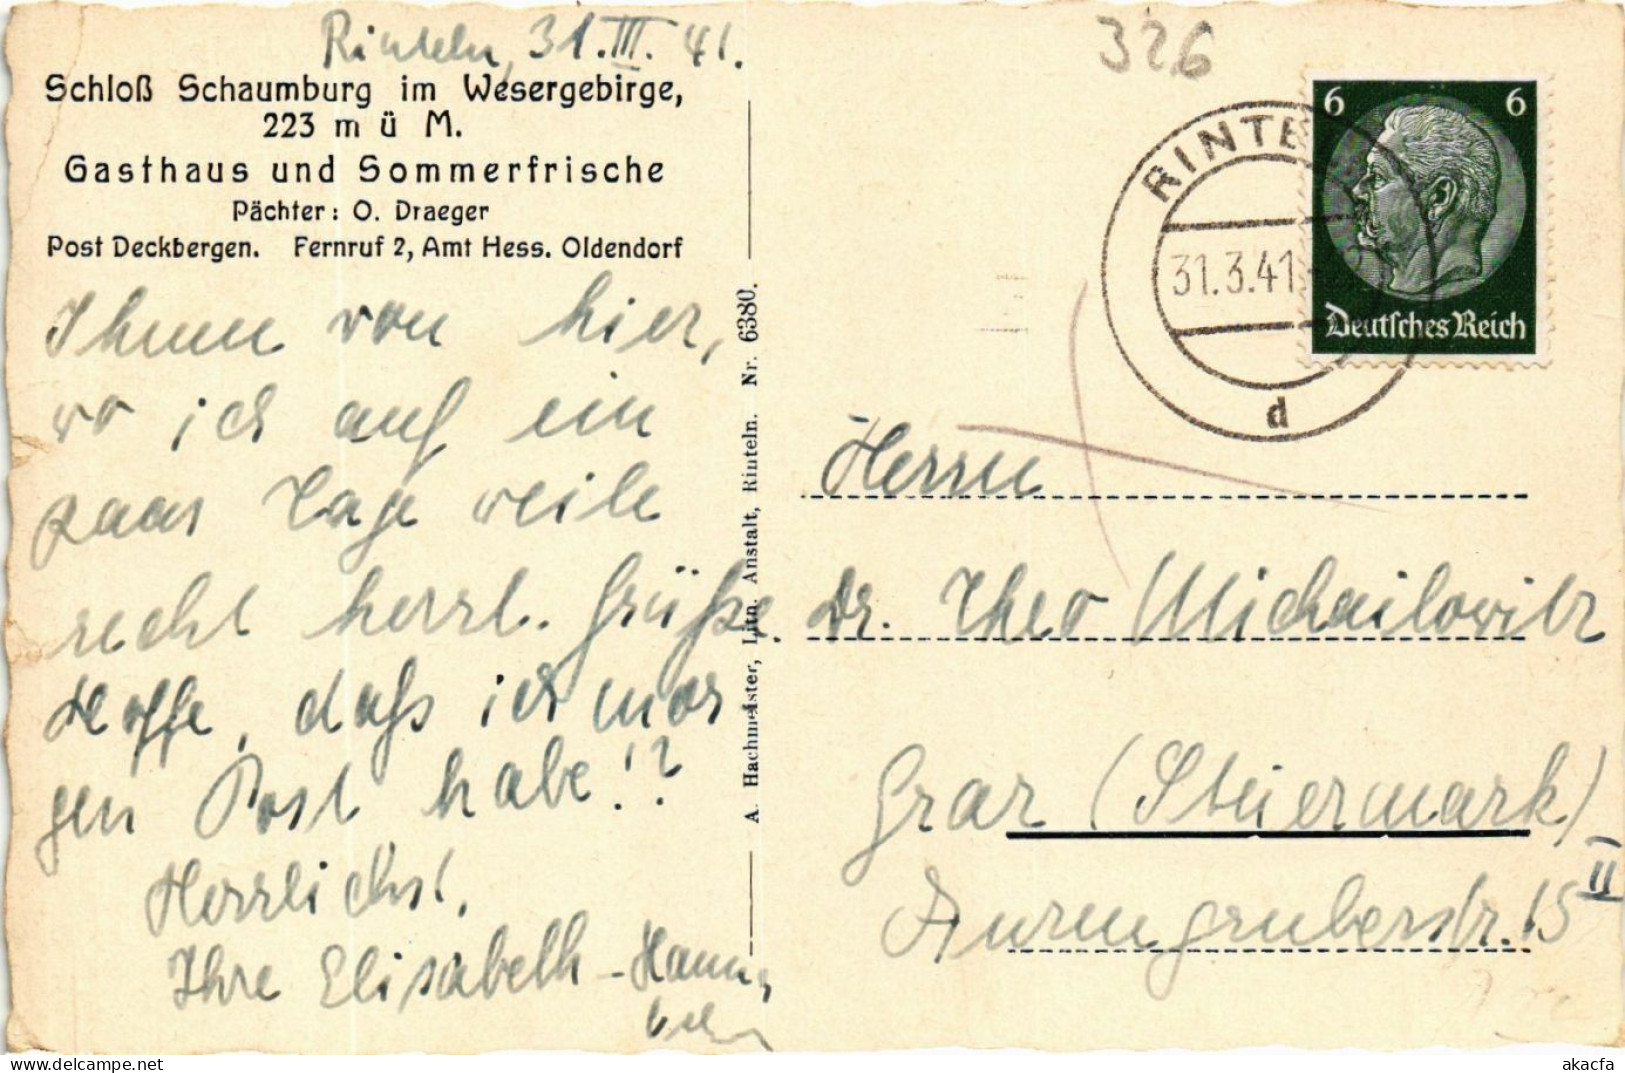 Rinteln, 31.III.41.
326
Schloß Schaumburg im Wesergebirge,
223 m ü M.
Gasthaus und Sommerfrische
Pächter: O. Draeger
Post Deckbergen. Fernruf 2, Amt Hess. Oldendorf
6 6
Deutsches Reich
RINTE
31.3.41
d
Ihnen von hier,
wo ich auf ein
paar Tage weile
recht herzl. Grüße.
Hoffe, daß ich mor
gen Post habe!?
Herzlichst,
Ihre Elisabeth
A. Hachmeister, Lith. Anstalt, Rinteln. Nr. 6380.
Herrn
Dr. Theo Michailowitz
Graz (Steiermark)
II
15
akacfa